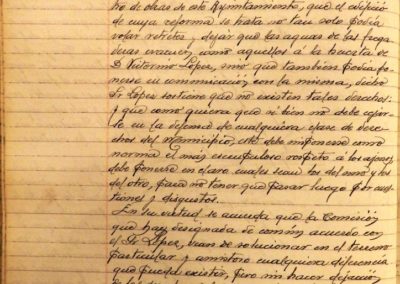 tro de obras de este Ayuntamiento, que el edificio
de cuya reforma se trata no tan solo podia
volar retrete, y dejar que las aguas de las fuga
deras cayeran, como aquellos á la huerta de
D. Victorino Lopez, sino que tambien podia po-
nerse en comunicación con la misma, dicho
Sr. Lopez sostiene que no existen tales derechos:
y que como quiera que si bien no debe cejar-
se en la defensa de cualquiera clase de dere-
chos del Municipio, debe imponerse como
norma el más escrupuloso respeto á los ajenos,
debe ponerse en claro cuales sean los del uno y los
del otro, para no tener que pasar luego por cues-
tiones y disgustos.
En su virtud se acuerda que la Comisión
que hay designada de común acuerdo con
el Sr. Lopez, traten de solucionar en el terreno
particular y amistoso cualquiera diferencia
que pueda existir, pero sin hacer dejación